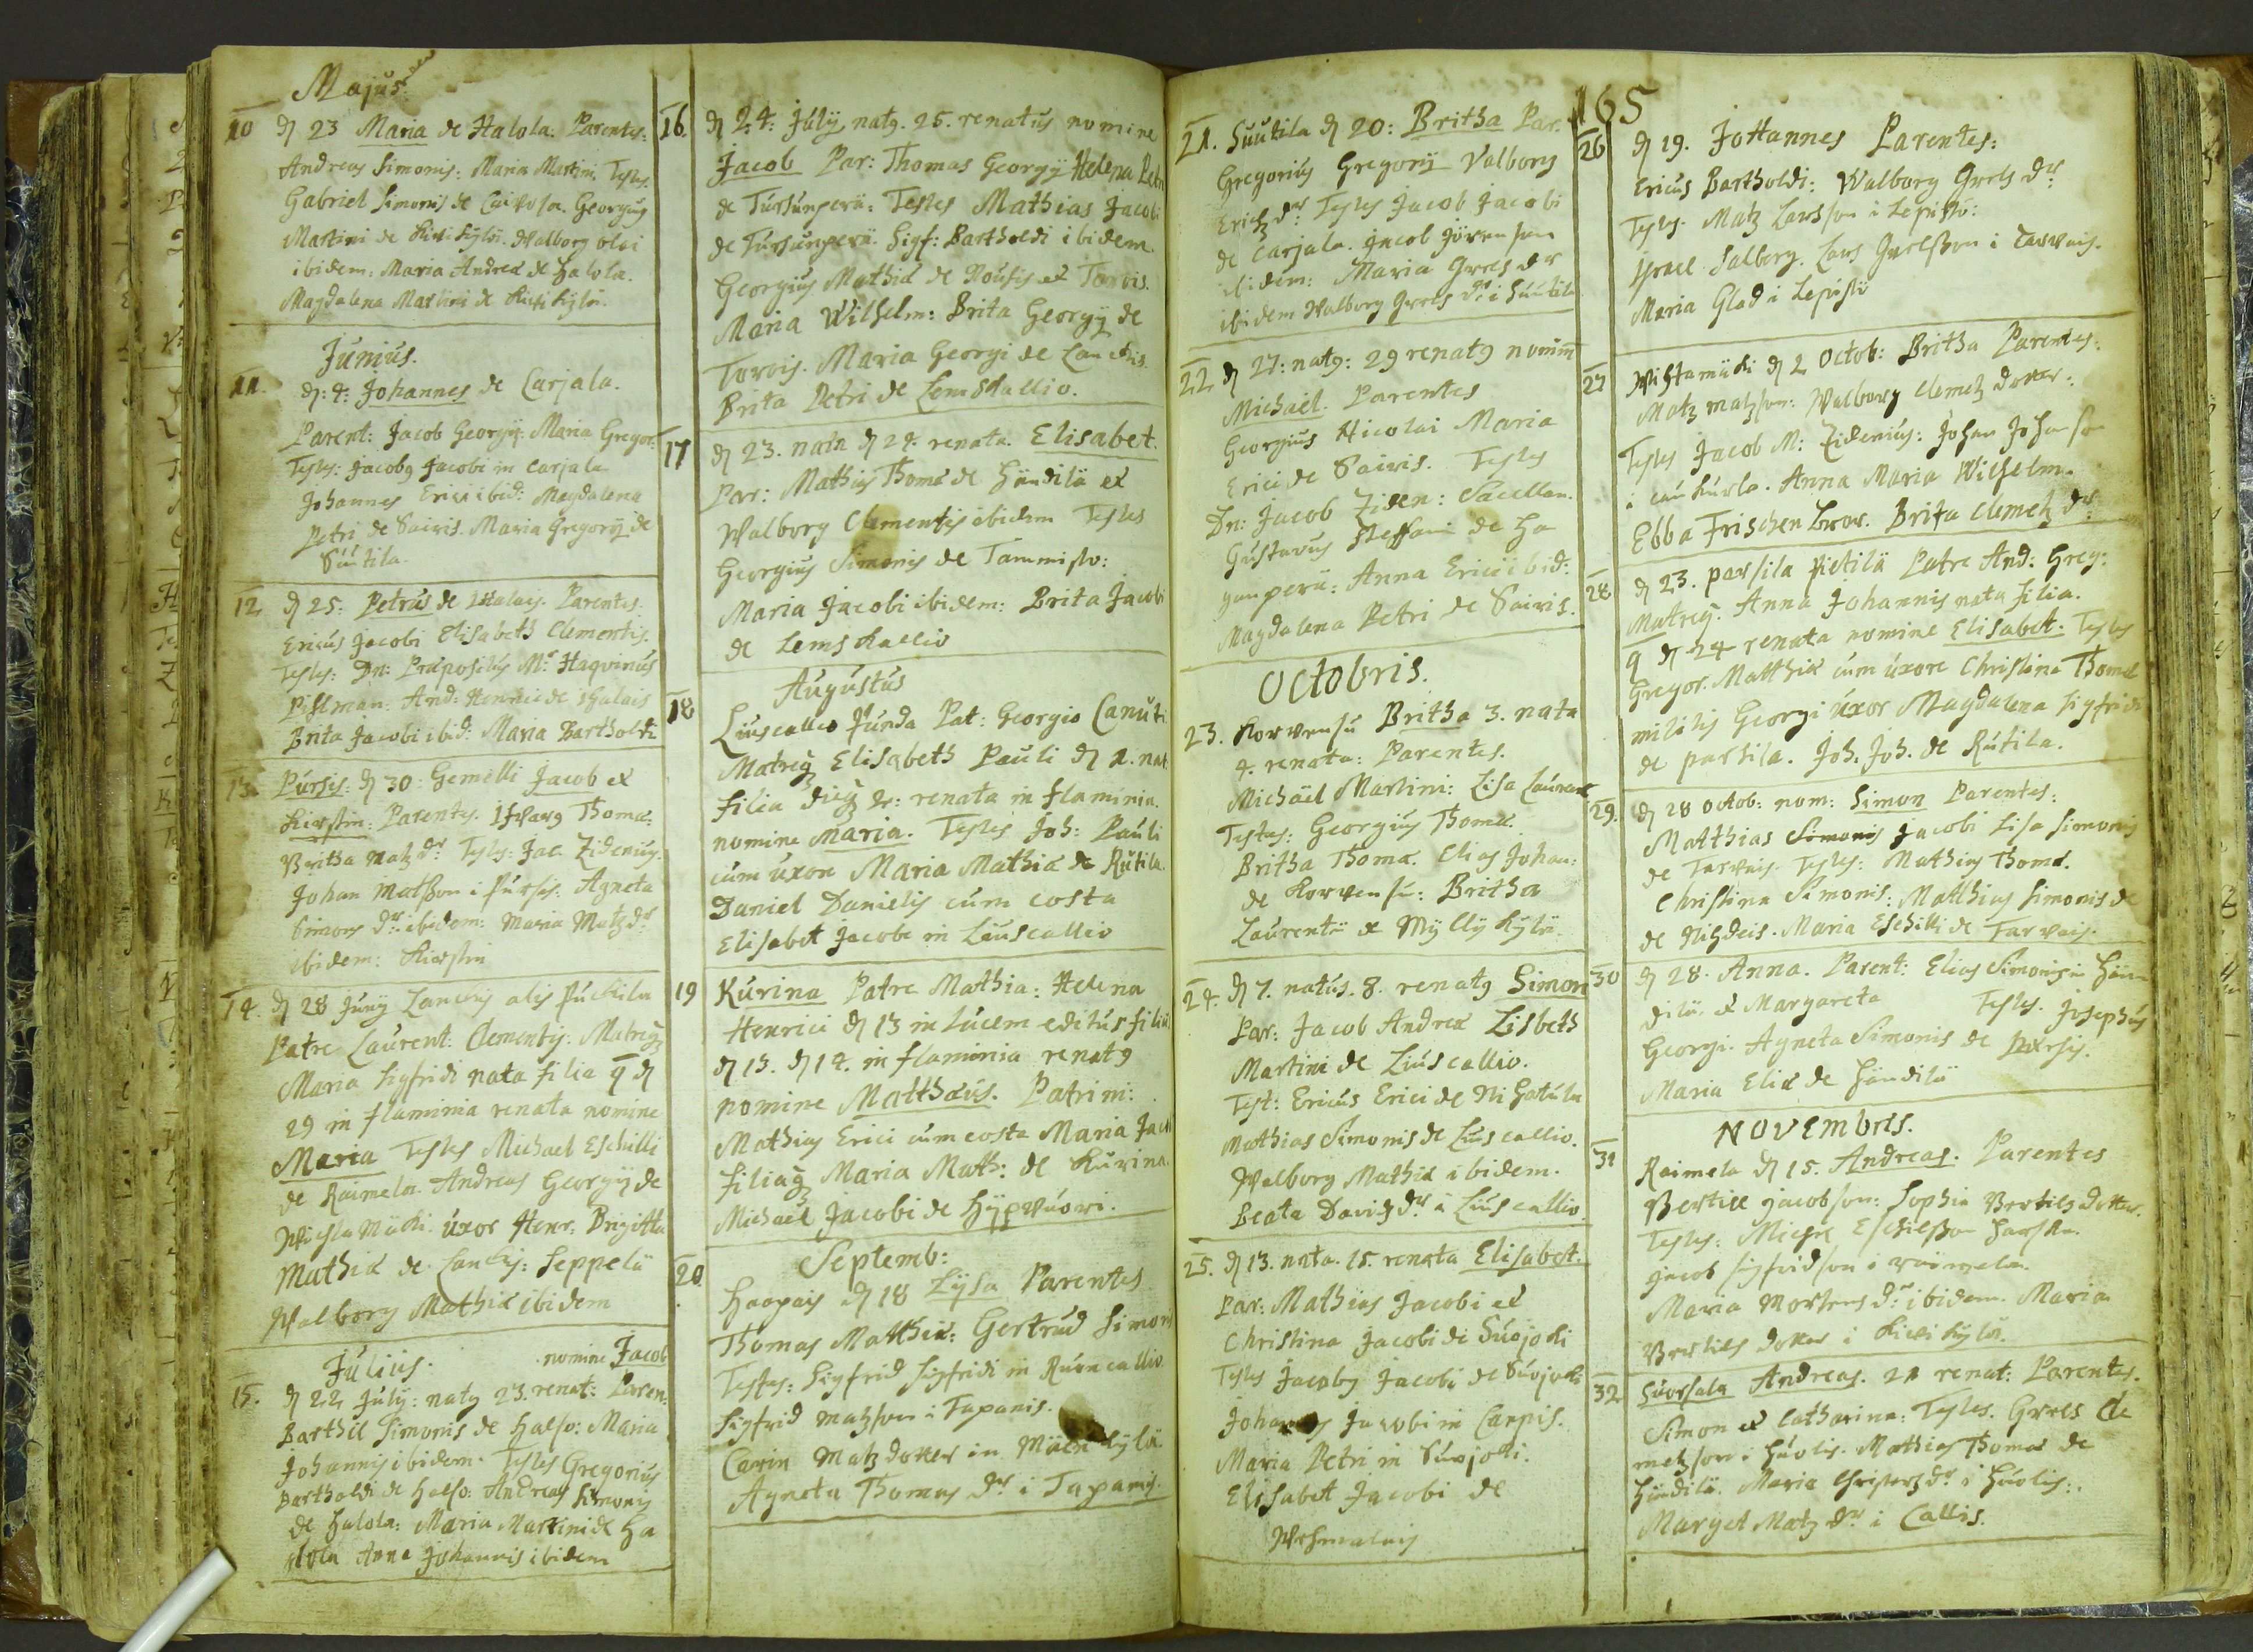 Majus.
10 d 23 Maria de Halola. Parentes:
Andreas Simonis: Maria Martini. Testes.
Gabriel Simonis de Georgius
Martini de Kivikylä. Walborg olai
ibidem: Maria Andreæ de Halola.
Magdalena Martini de Kivikylä.
Junius.
11. d: 4: Johannes de Carjala.
Parent: Jacob Georgij. Maria Gregor:
Testes: Jacobg Jacobi in Carjala
Johannes Erici ibid: Magdalena
Petri de Sairis. Maria Gregorij de
Suutila.
12 d 25: Petrus de Halais. Parentes.
Ericus Jacobi Elisabeth Clementis.
Testes: Dn: Præpositus Mr Haqvinus
Pihlman: And: Henrici de
Brita Jacobi ibid: Maria Bartholdi
13. Pursis: d 30: Gemelli Jacob et
Kirstin: Parentes. Thomæ:
Britha Matz dr. Testes: Jac. Zidenius.
Johan Matsson i Pursis. Agneta
Simons dr ibidem: Maria Matz dr
ibidem: Kirstin
14. d 28 Junij Lanckis
Patre Laurent: Clementis: Matreq
Maria Sigfridi nata filia q d
29 in flaminia renata nomine
Maria Testes Michael Eschilli
de Raimela. Andreas Georgij de
uxor Henr: Brigitta
Mathiæ de Lanckis: Seppelä
Walborg Mathiæ ibidem
Julius. nomine Jacob
15. d 22 July: natg 23. renat: Paren:
Barthil Simonis de Halso: Maria
Johannis ibidem. Testes Gregorius
Bartholdi de Halso. Andreas Simonis
de Halola: Maria Martini de Ha
lola Anna Johannis ibidem
16. d 24: Julij natg. 25. renatus nomine
Jacob Par: Thomas Georgij Helena Petri
de Tursunperä: Testes Mathias Jacobi
de Tursunperä. Sigf: Bartholdi ibidem
Georgius Mathiæ de Nousis et Torvis.
Maria Wilhelm: Brita Georgij de
Torvis. Maria Georgi de Lanckis.
Brita Petri de Lemskallio.
17 d 23. nata d 24. renata. Elisabet.
Par: Mathias Thomæ de Händilä et
Walborg Clementis ibidem Testes
Georgius Simonis de Tammisto:
Maria Jacobi ibidem: Brita Jacobi
de Lemskallio
Augustus
18 Liuscallio Junda Pat: Georgio Canuti
Matreq Elisabeth Pauli d 1. nat
filia renata in flaminia.
nomine Maria. Testes Joh: Pauli
cum uxore Maria Mathiæ de Rutila.
Daniel Danielis cum costa
Elisabet Jacobi in Liuscallio
19 Kurina Patre Mathia: Helena
Henrici d 13 in lucem editus filius
d 13. d 14. in flaminia renatg
nomine Matthæus. Patrini:
Mathias Erici cum costa Maria Jacobi
filiaq Maria Math: de Kurina
Michael Jacobi de Hypwuori.
Septemb:
20 Haapais d 18 Lysa Parentes
Thomas Matthiæ: Gertrud Simonis
Testes: Sigfrid Sigfridi in
Sigfrid Matzson i Tapanis.
Carin Matz dotter in
Agneta Thomas dr i Tapanis.
165
21. Suutila d 20: Britha Par.
Gregorius Gregorij Valborg
Erichz dr Testes Jacob Jacobi
de Carjala. Jacob Jöranson
ibidem: Maria Grels dr
ibidem Walborg Grels dr i Suutila
22 d 27: natg: 29 renatg nomin
Michael. Parentes
Georgius Nicolai Maria
Erici de Sairis. Testes
Dn: Jacob Ziden: Sacellan.
Gustavus Steffani de Ha
ganperä: Anna Erici ibid:
Magdalena Petri de Sairis.
Octobris.
23. Korvensu Britha 3. nata
4. renata: Parentes.
Michäel Martini: Lisa
Testes: Georgius Thomæ.
Britha Thomæ. Elias Johan:
de Korvensu: Britha
Laurentii de Myllykylä.
24. d 7. natus. 8. renatg Simon
Par: Jacob Andreæ Lisbeth
Martini de Liuscallio.
Test: Ericus Erici de Nihatula
Mathias Simonis de Liuscallio.
Walborg Mathiæ ibidem.
Beata Davidz dr i Liuscallio.
25. d 13. nata. 15. renata Elisabet.
Par: Mathias Jacobi et
Christina Jacobi di Suojoki
Testes Jacobg Jacobi de Suojoki
Johannes Jacobi in Carpis.
Maria Petri in Suojoki.
Elisabet Jacobi de
26 d 19. Johannes Parentes:
Ericus Bartholdi: Walborg Grels dr
Testes. Matz Larsson i Lepistö:
Israel Salberg. Lars Grelsson i Tarvais.
Maria Glad i Lepistö
27 d 2 Octob: Britha Parentes:
Matz Matzson: Walborg Clemetz dotter:
Testes Jacob M: Zidenius: Johan Johanson
i Anna Maria Wilhelm.
Ebba Brita Clemetz dr
28 d 23. parsila Pietilä Patre And: Greg:
Matreq. Anna Johannis nata filia.
q d 24 renata nomine Elisabet. Testes
Gregor. Matthiæ cum uxore Christina Thomæ
militis Georgi uxor Magdalena Sigfridi
de parsila. Joh. Joh. de Rutila.
29. d 28 Octob: nom: Simon Parentes:
Matthias Simonis Jacobi Lisa Simonis
de Tarvais. Testes: Mathias Thomæ.
Christina Simonis: Matthias Simonis de
de Maria Eschilli de Tarvais.
30 d 28. Anna. Parent: Elias Simonis in Hän
dilä. et Margareta Testes. Josephus
Georgi. Agneta Simonis de Pursis.
Maria Eliæ de Händilä
Novembris.
31 Raimela d 15. Andreas. Parentes
Bertill Jacobson: Sophia Bertils dotter.
Testes: Eschilsson
Jacob Sigfridson i raimela.
Maria Mortens dr ibidem. Maria
Bertils dotter i Kivikylä.
32 Suorsala Andreas. 21 renat: Parentes.
Simon et Catharina: Testes. Grels Cle
metzson i Huolis. Mathias Thomæ de
Händilä. Maria Christers dr i Huolis:.
Marget Matz dr i Callis.